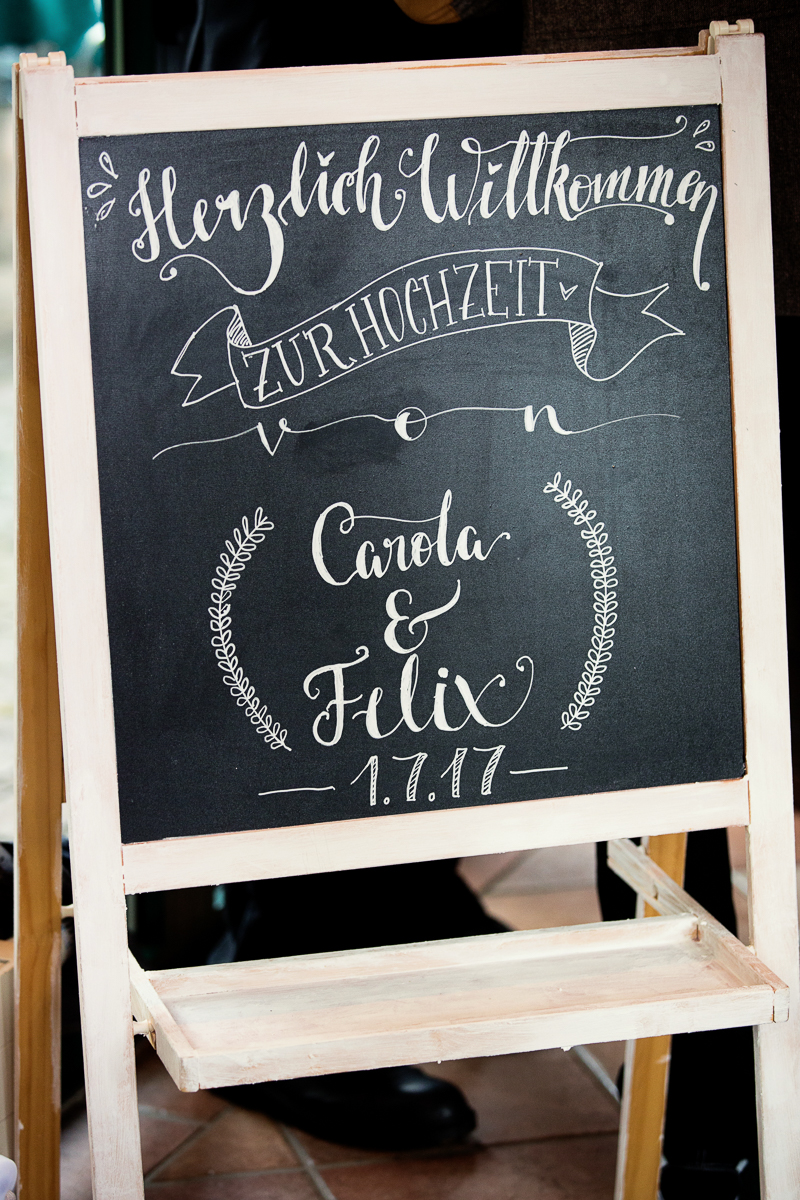 Herzlich Willkommen
ZUR HOCHZEIT
von
Carola
&
Felix
1.7.17